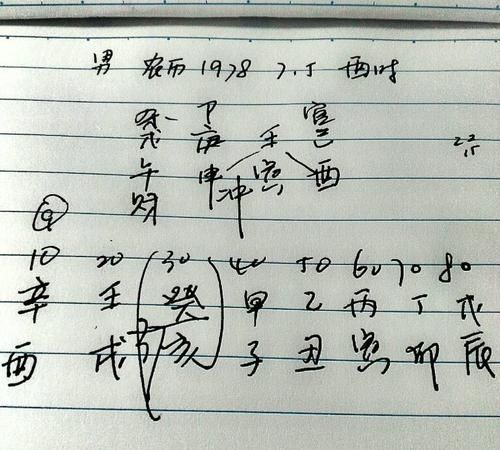 男 农历 1978 7.5 酉时
杀 官
戊 庚 壬 己
午 申 寅 酉
财 冲
⑨
10 20 30 40 50 60 70 80
辛 壬 癸 甲 乙 丙 丁 戊
酉 戌 亥 子 丑 寅 卯 辰